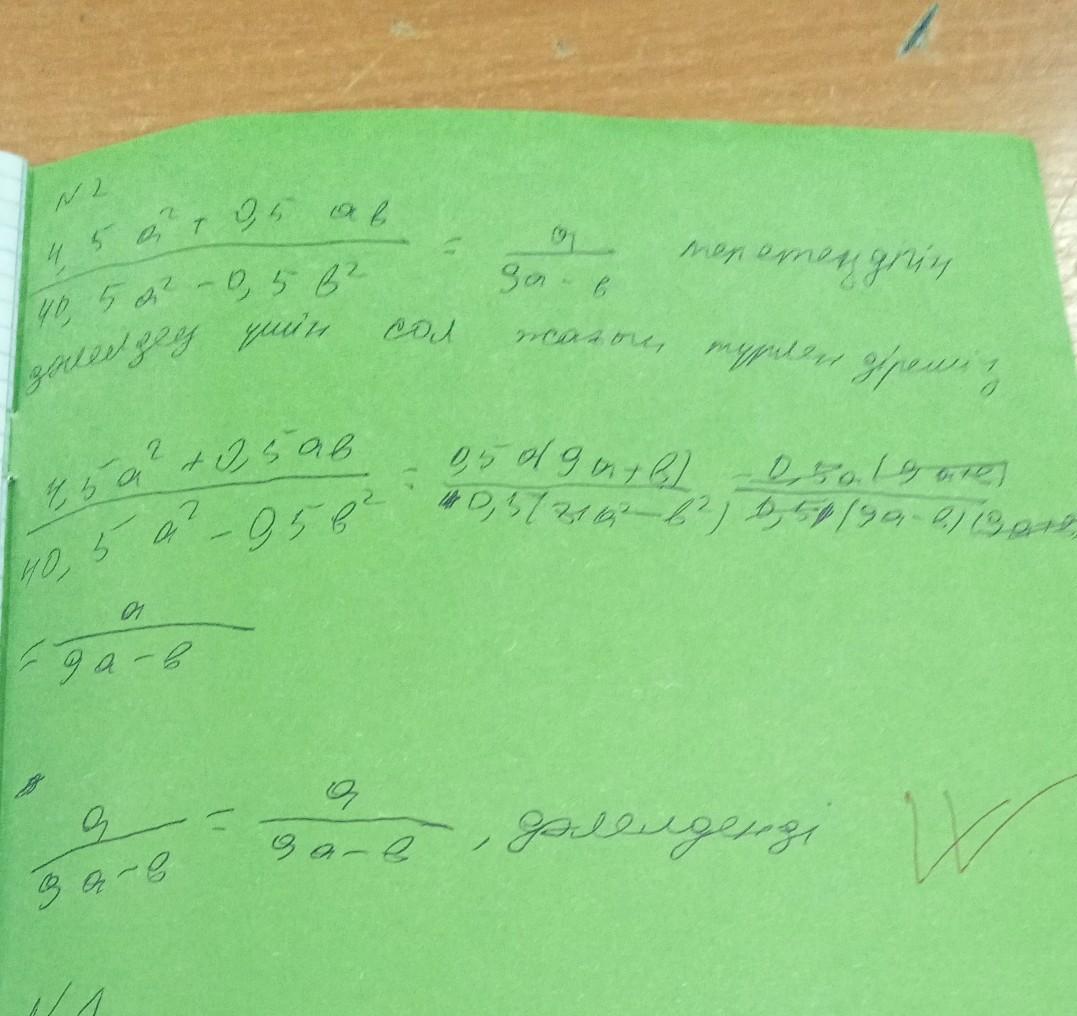 N 2
4,5 a² + 0,5 ab / 40,5 a² - 0,5 b² = a / 9a - b тепетеңдігін
дәлелдеу үшін сол жағын түрлендіреміз
4,5a² + 0,5ab / 40,5 a² - 0,5b² = 0,5a(9a+b) / 0,5(81a² - b²) = 0,5a(9a+b) / 0,5(9a-b)(9a+b)
= a / 9a - b
a / 9a - b = a / 9a - b , дәлелденді